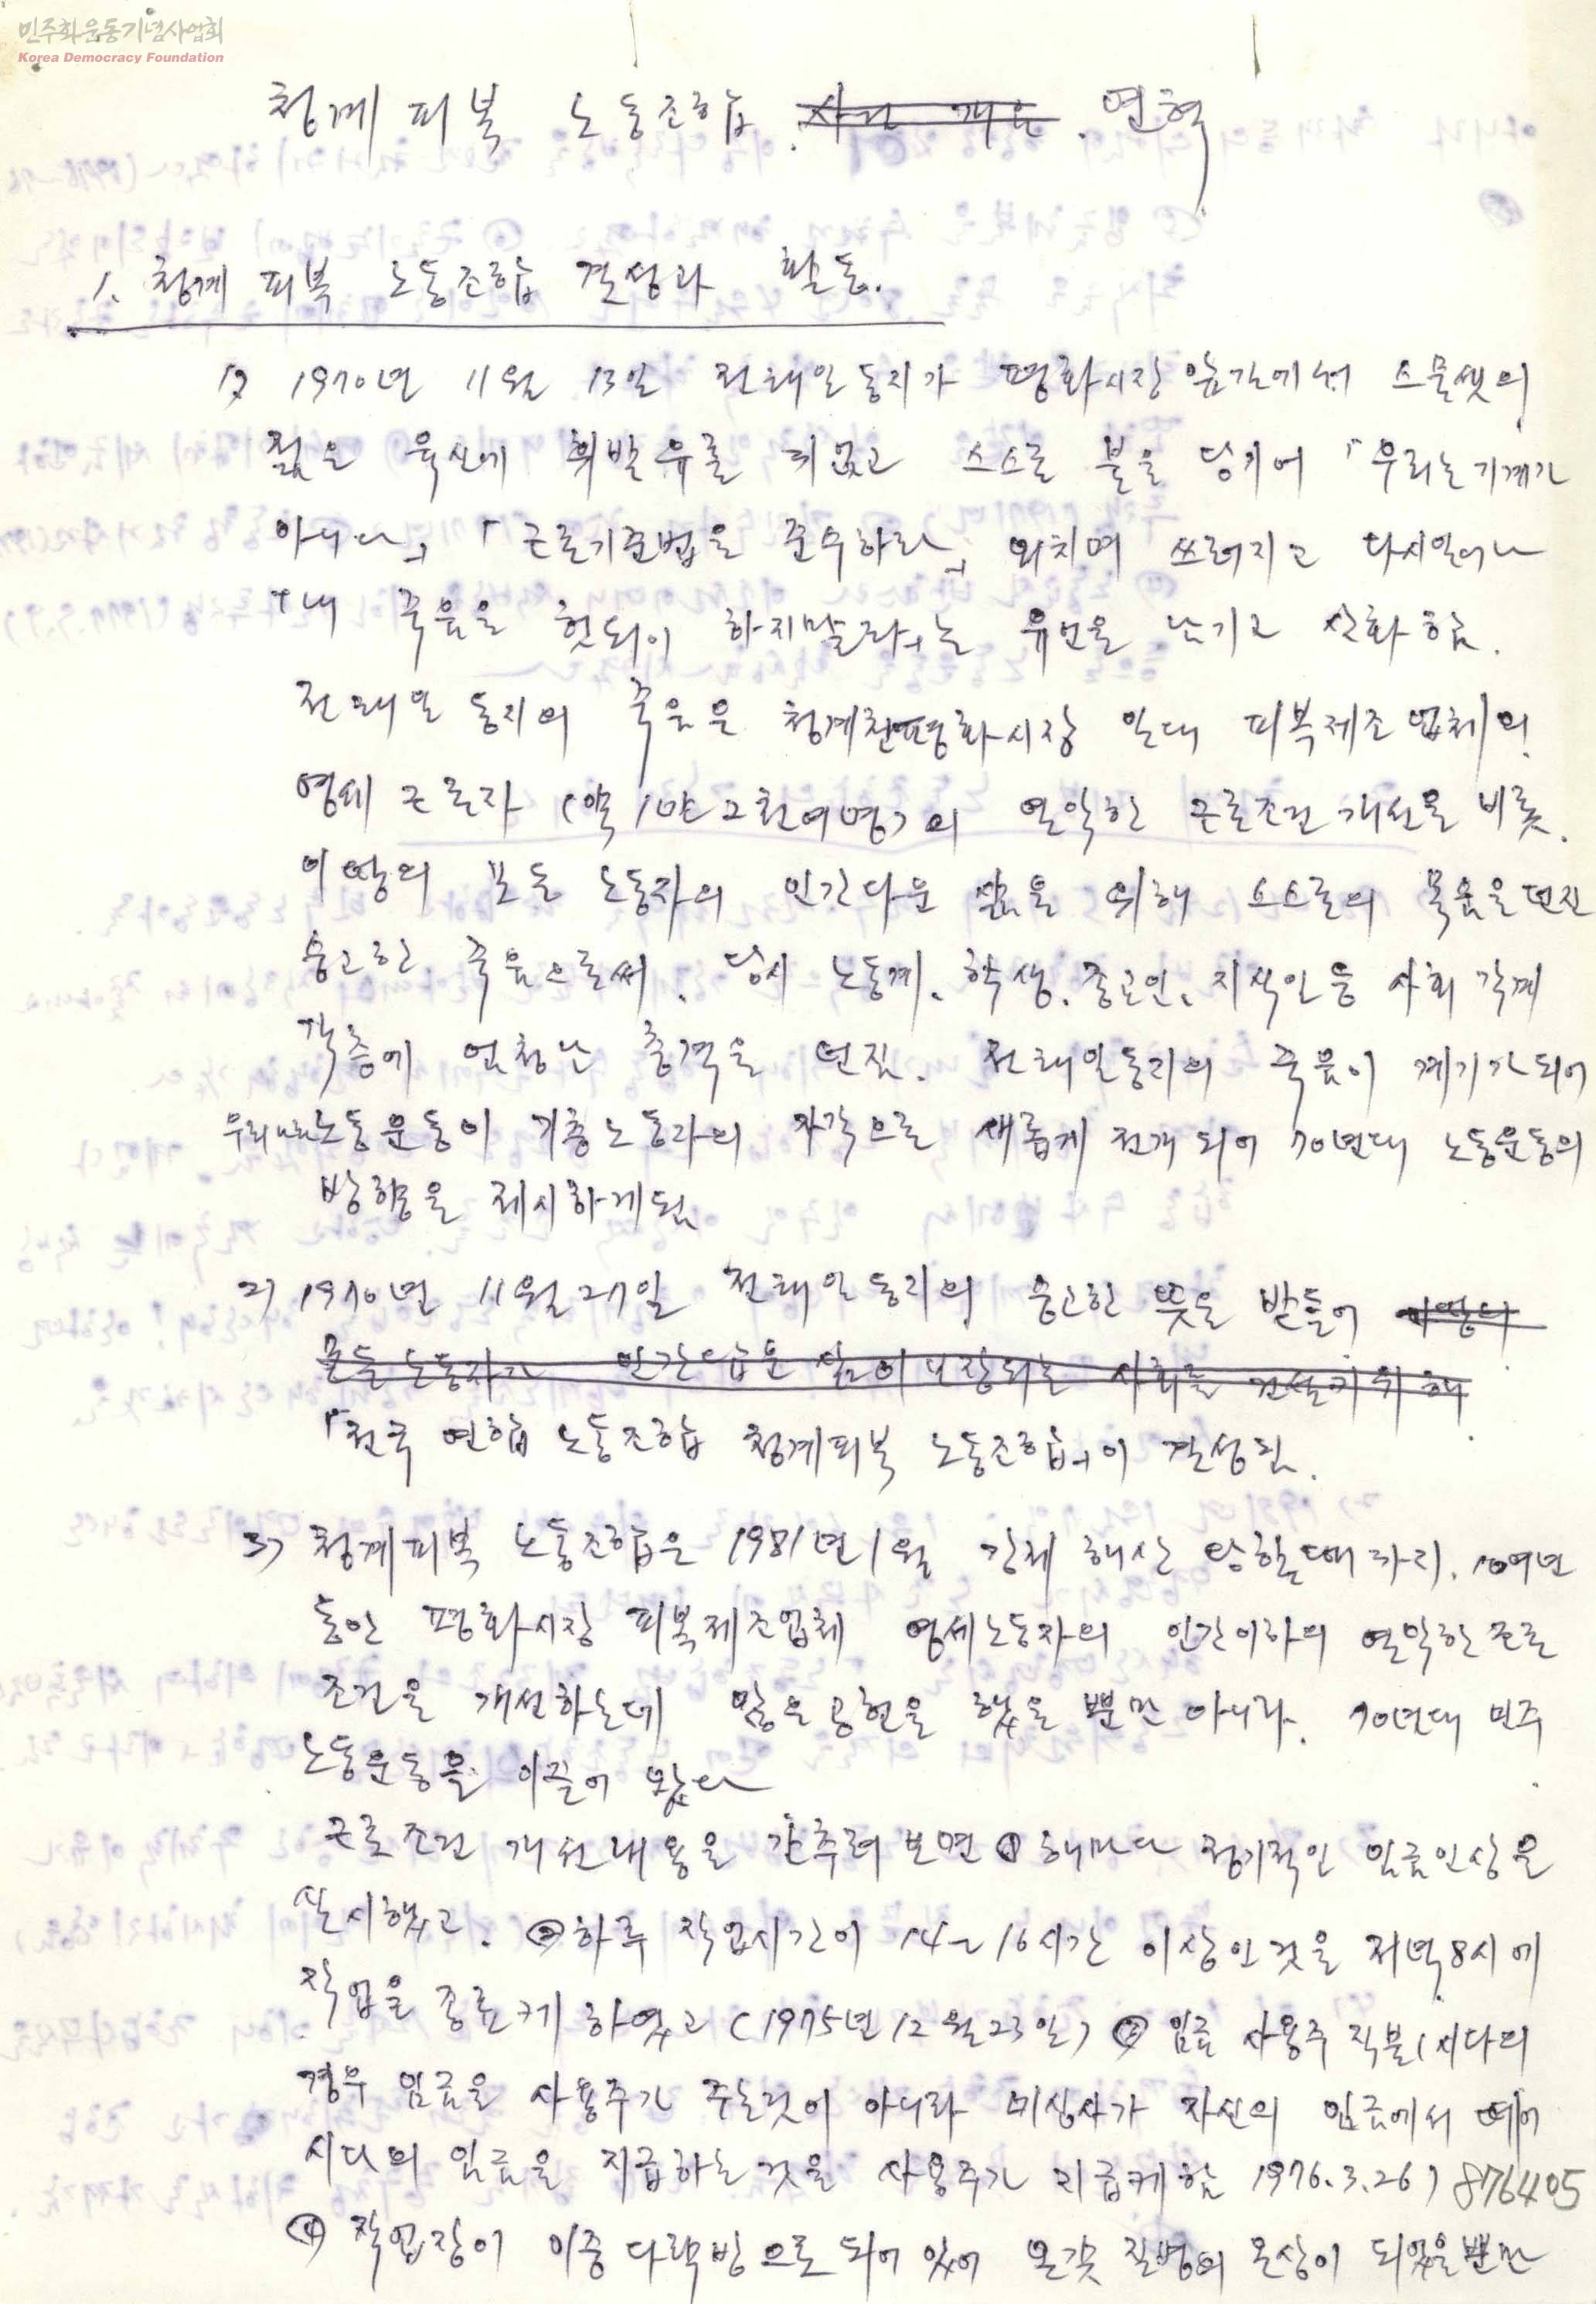 민주화운동기념사업회
Korea Democracy Foundation
청계 피복 노동조합 사건 개요. 연혁
1. 청계 피복 노동조합 결성과 활동.
1) 1970년 11월 13일 전태일 동지가 평화시장 앞길에서 스물셋의
젊은 육신에 휘발유를 끼얹고 스스로 불을 당기어 「우리는 기계가
아니다」 「근로기준법을 준수하라」 외치며 쓰러지고 다시일어나
「내 죽음을 헛되이 하지말라」는 유언을 남기고 산화함.
전태일 동지의 죽음은 청계천평화시장 일대 피복제조업체의
영세 근로자 (약 1만 2천여명)의 열악한 근로조건 개선을 비롯.
이땅의 모든 노동자의 인간다운 삶을 위해 스스로의 목숨을 던진
숭고한 죽음으로써. 당시 노동계. 학생. 종교인. 지식인등 사회 각계
각층에 엄청난 충격을 던짐. 전태일동지의 죽음이 계기가 되어
우리나라 노동운동이 기층노동자의 자각으로 새롭게 전개되어 70년대 노동운동의
방향을 제시하게됨
2) 1970년 11월 27일 전태일동지의 숭고한 뜻을 받들어 이땅의
모든 노동자가 인간다운 삶이 보장되는 사회를 건설키 위해
「전국 연합 노동조합 청계피복 노동조합」이 결성됨.
3) 청계피복 노동조합은 1981년 1월 강제 해산 당할때까지. 10여년
동안 평화시장 피복제조업체 영세노동자의 인간이하의 열악한 근로
조건을 개선하는데 많은 공헌을 했을 뿐만 아니라. 70년대 민주
노동운동을 이끌어 왔다
근로조건 개선내용을 간추려 보면 ① 해마다 정기적인 임금인상을
실시했고. ② 하루 작업시간이 14~16시간 이상인 것을 저녁 8시에
작업을 종료케 하였고 (1975년 12월 23일) ③ 임금 사용주 직불 (시다의
경우 임금을 사용주가 주는것이 아니라 미싱사가 자신의 임금에서 떼어
시다의 임금을 지급하는 것을 사용주가 지급케함 1976. 3. 26) 876405
④ 작업장이 이중 다락방으로 되어 있어 온갖 질병의 온상이 되었을뿐만